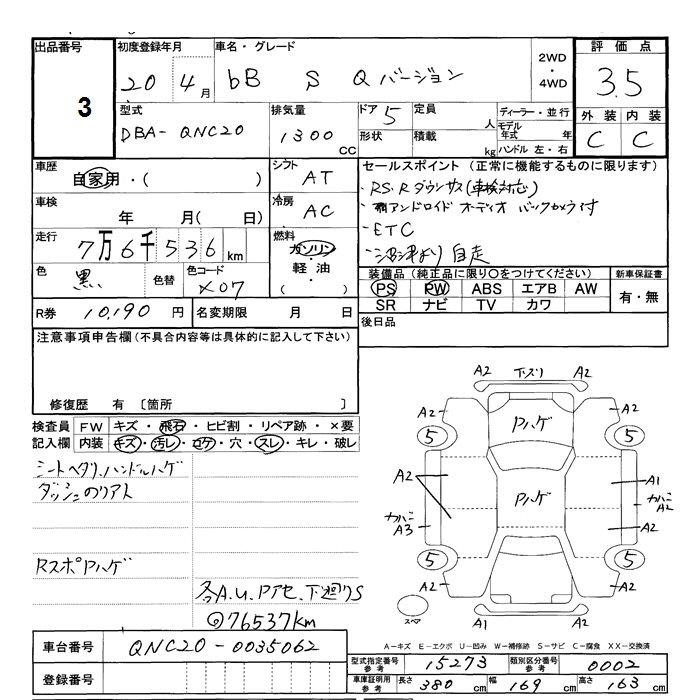 出品番号 初度登録年月 車名・グレード 2WD・4WD 評価点
3 20 4月 bB S Qバージョン 3.5
型式 排気量 ドア 5 定員 人 ディーラー・並行 外装 内装
DBA-QNC20 1300 CC 形状 積載 kg モデル年式 年 ハンドル 左・右 C C
車歴 自家用・( ) シフト AT セールスポイント(正常に機能するものに限ります)
・RS.R ダウンサス(車検対応)
車検 年 月( 日) 冷房 AC ・アンドロイド オーディオ バックカメラ付
・ETC
走行 7万6千536km 燃料 ガソリン・軽油・( )
・沼津より 自走
色 黒 色替 色コード X07
装備品(純正品に限り○をつけてください) 新車保証書
PS PW ABS エアB AW 有・無
SR ナビ TV カワ
R券 10,190円 名変期限 月 日 後日品
注意事項申告欄(不具合内容等は具体的に記入して下さい)
修復歴 有 〔箇所 〕
検査員記入欄 FW キズ・飛石・ヒビ割・リペア跡・×要
内装 キズ・汚レ・コゲ・穴・スレ・キレ・破レ
シートヘタリ、ハンドルハゲ
ダッシュのリアト
RスポPハゲ
各A.U.Pアセ、下廻りS
@76537km
A2 下ズリ A2
A2 Pハゲ A2
5 5
A2 Pハゲ A1
カバニ A3 カバニ A2
A2
5 5
A2 A2
スペア A1 A2
A-キズ E-エクボ U-凹み W-補修跡 S-サビ C-腐食 XX-交換済
車台番号 QNC20-0035062
登録番号
型式指定番号 参考 15273 類別区分番号 参考 0002
車庫証明用 参考 長さ 380cm 幅 169cm 高さ 163cm